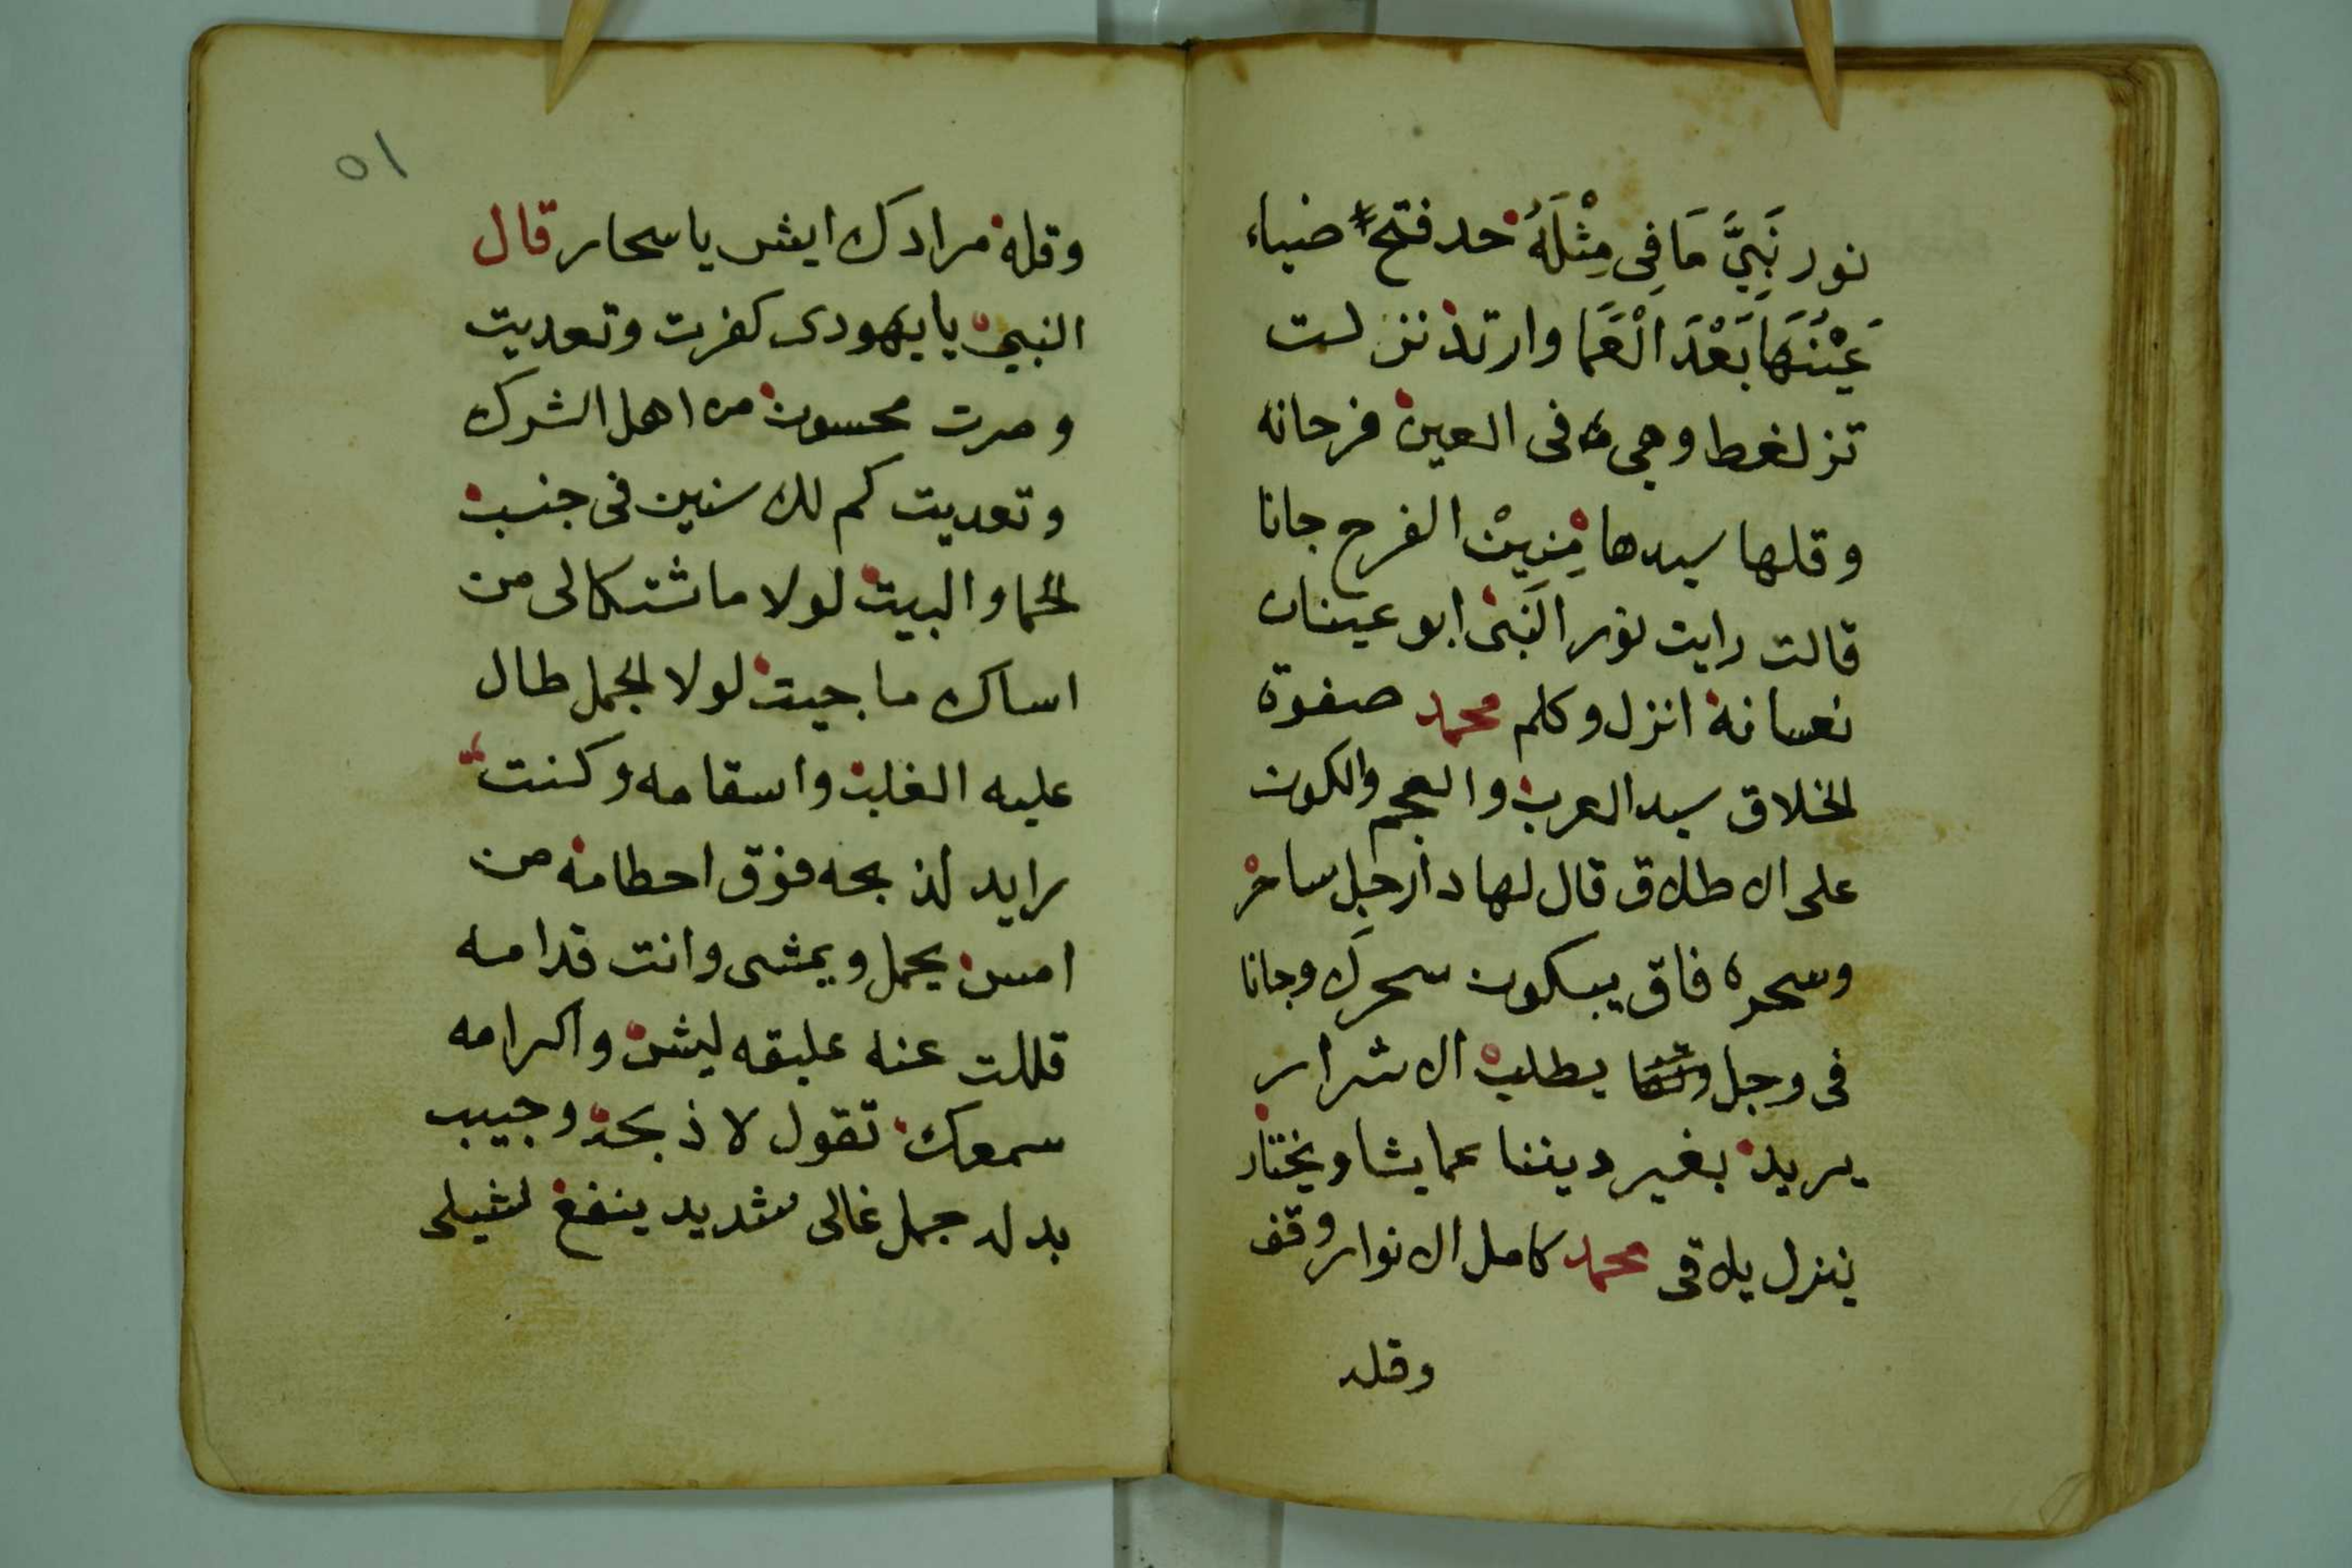 نور نَبِيَّ مَا فِى مِثْلَهُ حد فتح ضياء
عَيْنَهَا بَعْدَ الْعَمَا وارتد نزلت
تزلغط وهى فى العين فرحانه
وقلها سيدها مِنِيْن الفرح جانا
قالت رايت نور النَبى ابو عينان
نعسانة انزل وكلم محمد صفوة
الخلاق سيد العرب والعجم والكون
على الاطلاق قال لها دا رجل ساحر
وسحره فاق يبكون سحرك وجانا
فى وجل يطلب الاشرار
يريد بغير ديننا عما يشا ويختار
ينزل يلاقى محمد كامل الانوار وقف
وقله
٥١
وقله مرادك ايش يا سحار قال
النبى يا يهودى كفرت وتعديت
وصرت محسوب من اهل الشرك
وتعديت كم لك سنين فى جنب
الحما والبيت لولا ما شتكالى من
اساك ما جيت لولا الجمل طال
عليه الغلب واسقامه وكنت
رايد لذبحه فوق احطامه من
امس يحمل ويمشى وانت قدامه
قللت عنه عليقه ليش واكرامه
سمعك تقول لاذبحه وجيب
بدله جمل غالى شديد ينفع لشيلى